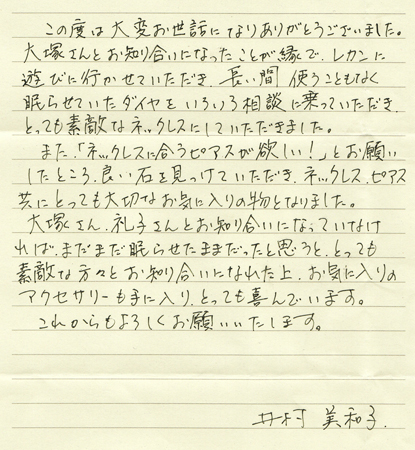 この度は大変お世話になりありがとうございました。
大塚さんとお知り合いになったことが縁で、レカンに
遊びに行かせていただき、長い間 使うこともなく
眠らせていたダイヤをいろいろ相談に乗っていただき、
とっても素敵なネックレスにしていただきました。
また、「ネックレスに合うピアスが欲しい!」とお願い
したところ、良い石を見つけていただき、ネックレス、ピアス
共にとっても大切なお気に入りの物となりました。
大塚さん、礼子さんとお知り合いになっていなけ
れば、まだまだ眠らせたままだったと思うと、とっても
素敵な方々とお知り合いになれた上、お気に入りの
アクセサリーも手に入り、とっても喜んでいます。
これからもよろしくお願いいたします。
井村 美和子